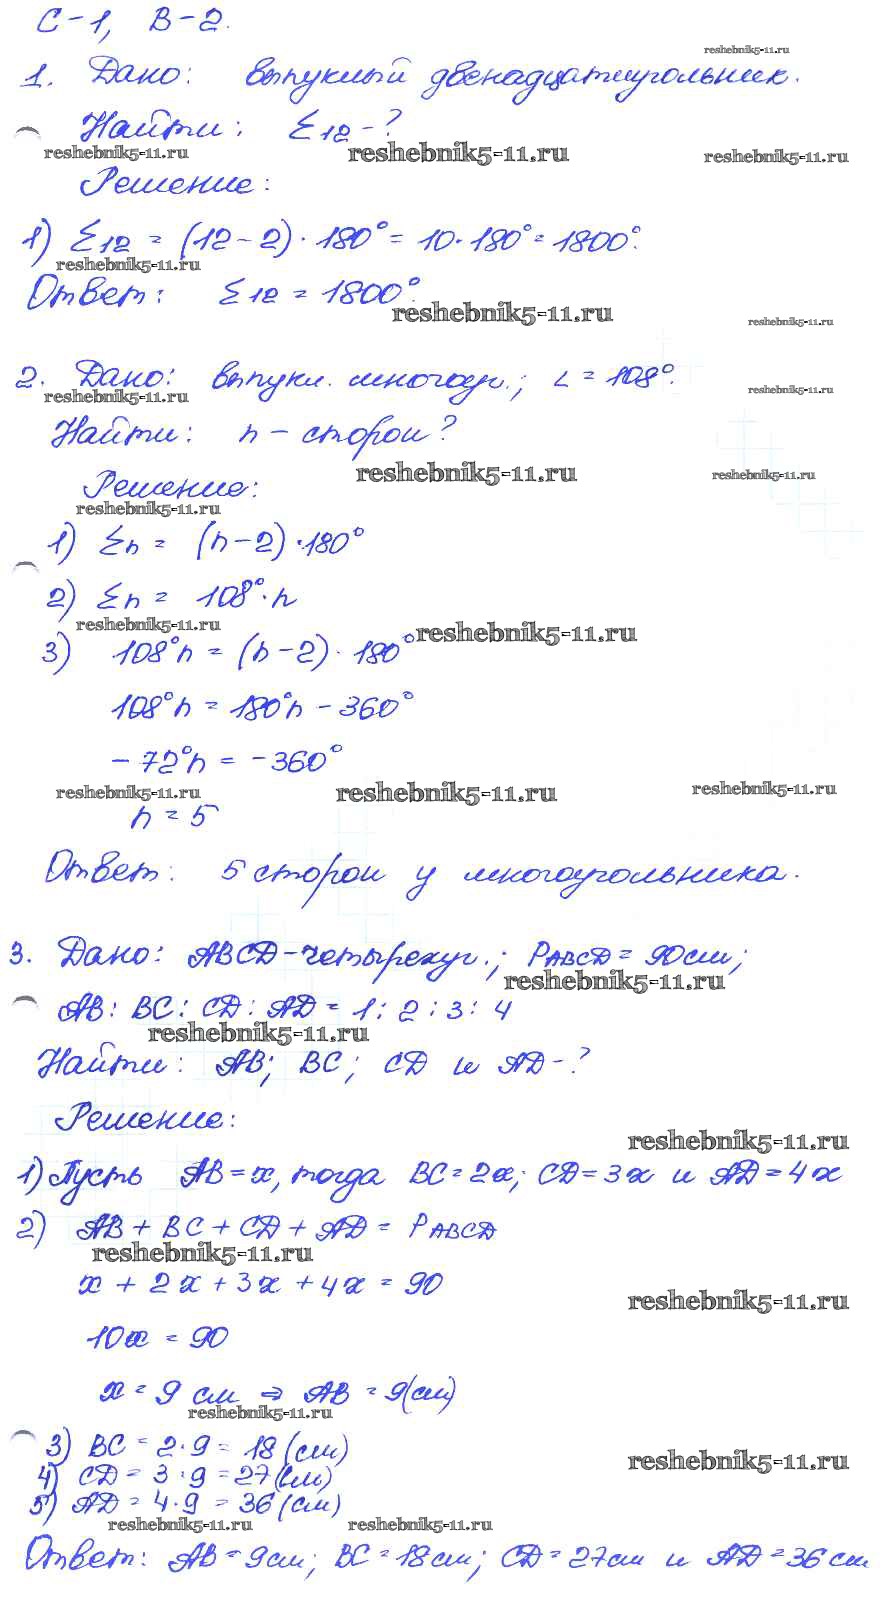 С-1, В-2.
reshebnik5-11.ru
1. Дано: выпуклый двенадцатиугольник.
Найти: Σ12 - ?
reshebnik5-11.ru reshebnik5-11.ru reshebnik5-11.ru
Решение:
1) Σ12 = (12-2)·180° = 10·180° = 1800°.
reshebnik5-11.ru
Ответ: Σ12 = 1800°.
reshebnik5-11.ru reshebnik5-11.ru
2. Дано: выпукл. многоуг.; ∠ = 108°.
reshebnik5-11.ru reshebnik5-11.ru
Найти: n - сторон?
reshebnik5-11.ru reshebnik5-11.ru
Решение:
reshebnik5-11.ru
1) Σn = (n-2)·180°
2) Σn = 108°·n
reshebnik5-11.ru reshebnik5-11.ru
3) 108°n = (n-2)·180°
108°n = 180°n - 360°
-72°n = -360°
reshebnik5-11.ru reshebnik5-11.ru reshebnik5-11.ru
n = 5
Ответ: 5 сторон у многоугольника.
3. Дано: ABCD - четырехуг.; PABCD = 90см;
reshebnik5-11.ru
AB : BC : CD : AD = 1 : 2 : 3 : 4
reshebnik5-11.ru
Найти: AB; BC; CD и AD - ?
Решение:
reshebnik5-11.ru
1) Пусть AB = x, тогда BC = 2x; CD = 3x и AD = 4x
2) AB + BC + CD + AD = PABCD
reshebnik5-11.ru
x + 2x + 3x + 4x = 90
reshebnik5-11.ru
10x = 90
x = 9 см ⇒ AB = 9(см)
reshebnik5-11.ru
3) BC = 2·9 = 18 (см)
reshebnik5-11.ru
4) CD = 3·9 = 27(см)
5) AD = 4·9 = 36 (см)
reshebnik5-11.ru reshebnik5-11.ru
Ответ: AB = 9см; BC = 18см; CD = 27см и AD = 36см